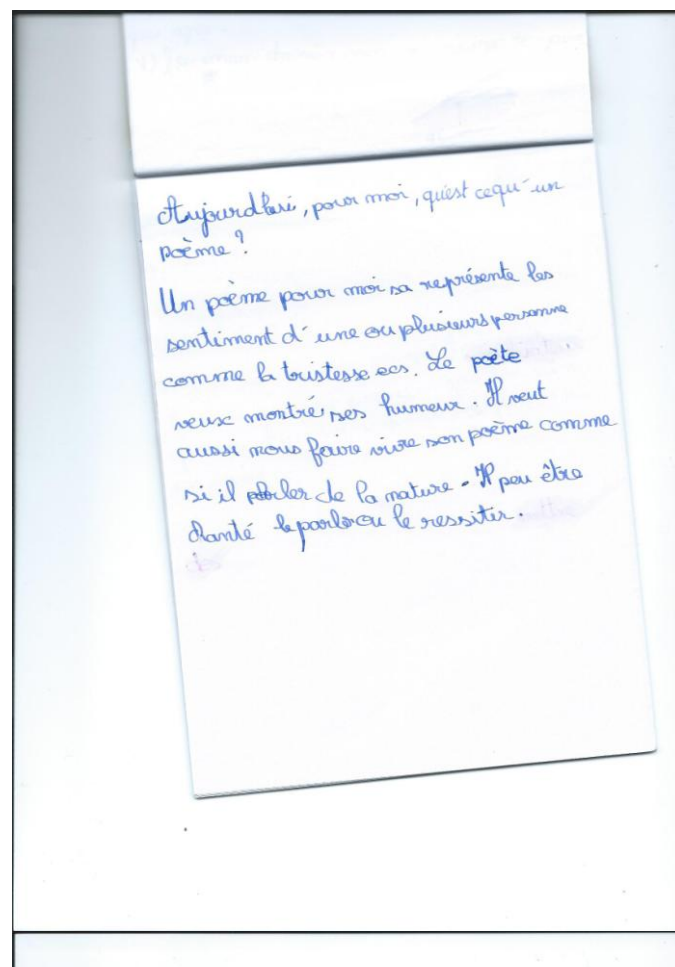 Aujourd'hui, pour moi, qu'est cequ'un
poème ?
Un poème pour moi sa représente les
sentiment d'une ou plusieurs personne
comme la tristesse ecs. Le poète
veux montré ses humeur. Il veut
aussi nous faire vivre son poème comme
si il parler de la nature. Il peu être
chanté le parler ou le ressiter.